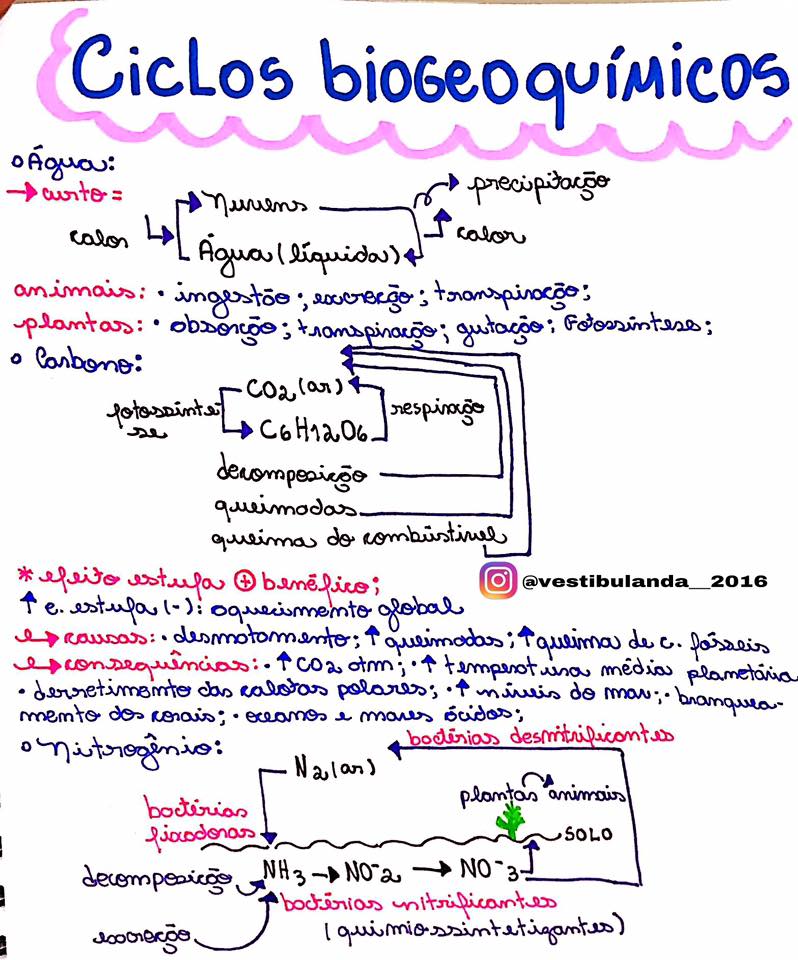 Ciclos biogeoquímicos
Água:
→ curto =
Nuvens
precipitação
calor
calor
Água (líquida)
animais: • ingestão; excreção; transpiração;
plantas: • absorção; transpiração; gutação; fotossíntese;
Carbono:
CO2 (ar)
fotossínte
se
respiração
C6H12O6
decomposição
queimadas
queima do combústivel
@vestibulanda__2016
* efeito estufa ⊕ benéfico;
↑ e. estufa (-): aquecimento global
↳ causas: • desmatamento; ↑ queimadas; ↑ queima de c. fósseis
↳ consequências: • ↑ CO2 atm; • ↑ temperatura média planetária
• derretimento das calotas polares; • ↑ níveis do mar; • branquea-
mento dos corais; • oceanos e mares ácidos;
Nitrogênio:
bactérias desnitrificantes
N2 (ar)
plantas animais
bactérias
fixadoras
SOLO
decomposição
NH3 → NO-2 → NO-3
bactérias nitrificantes
(quimiossintetizantes)
excreção